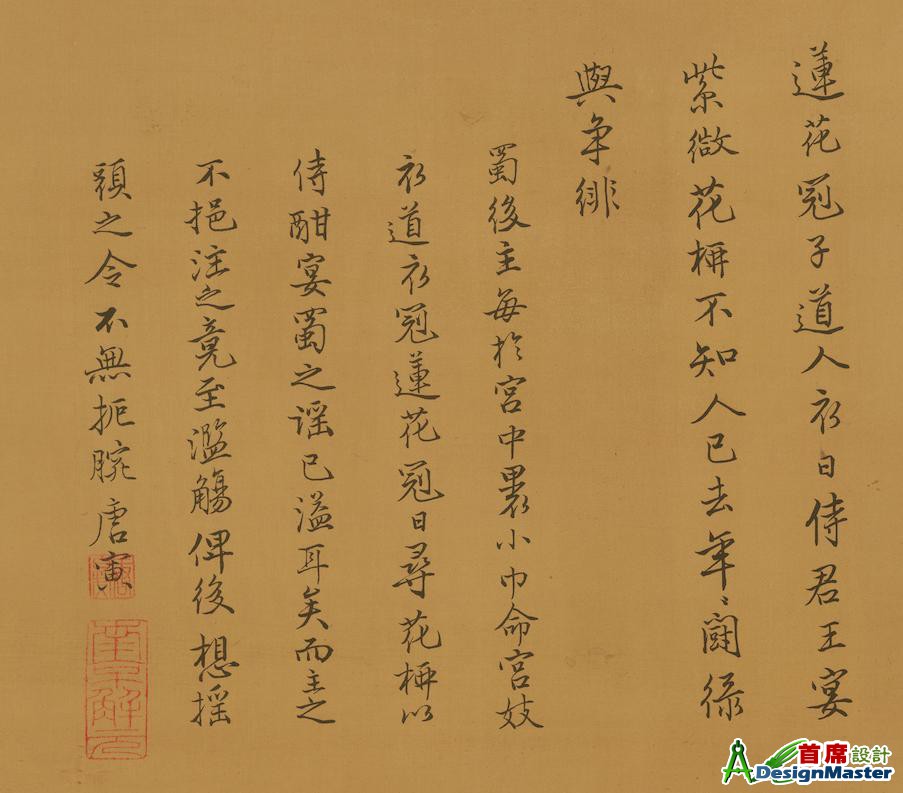 蓮花冠子道人衣日侍君王宴
紫微花柳不知人已去年〻鬪綠
與爭緋
蜀後主每於宮中裹小巾命宮妓
衣道衣冠蓮花冠日尋花柳以
侍酣宴蜀之謡已溢耳矣而主之
不挹注之竟至濫觴俾後想揺
頭之令不無扼腕唐寅
南京解元
首席設計
DesignMaster